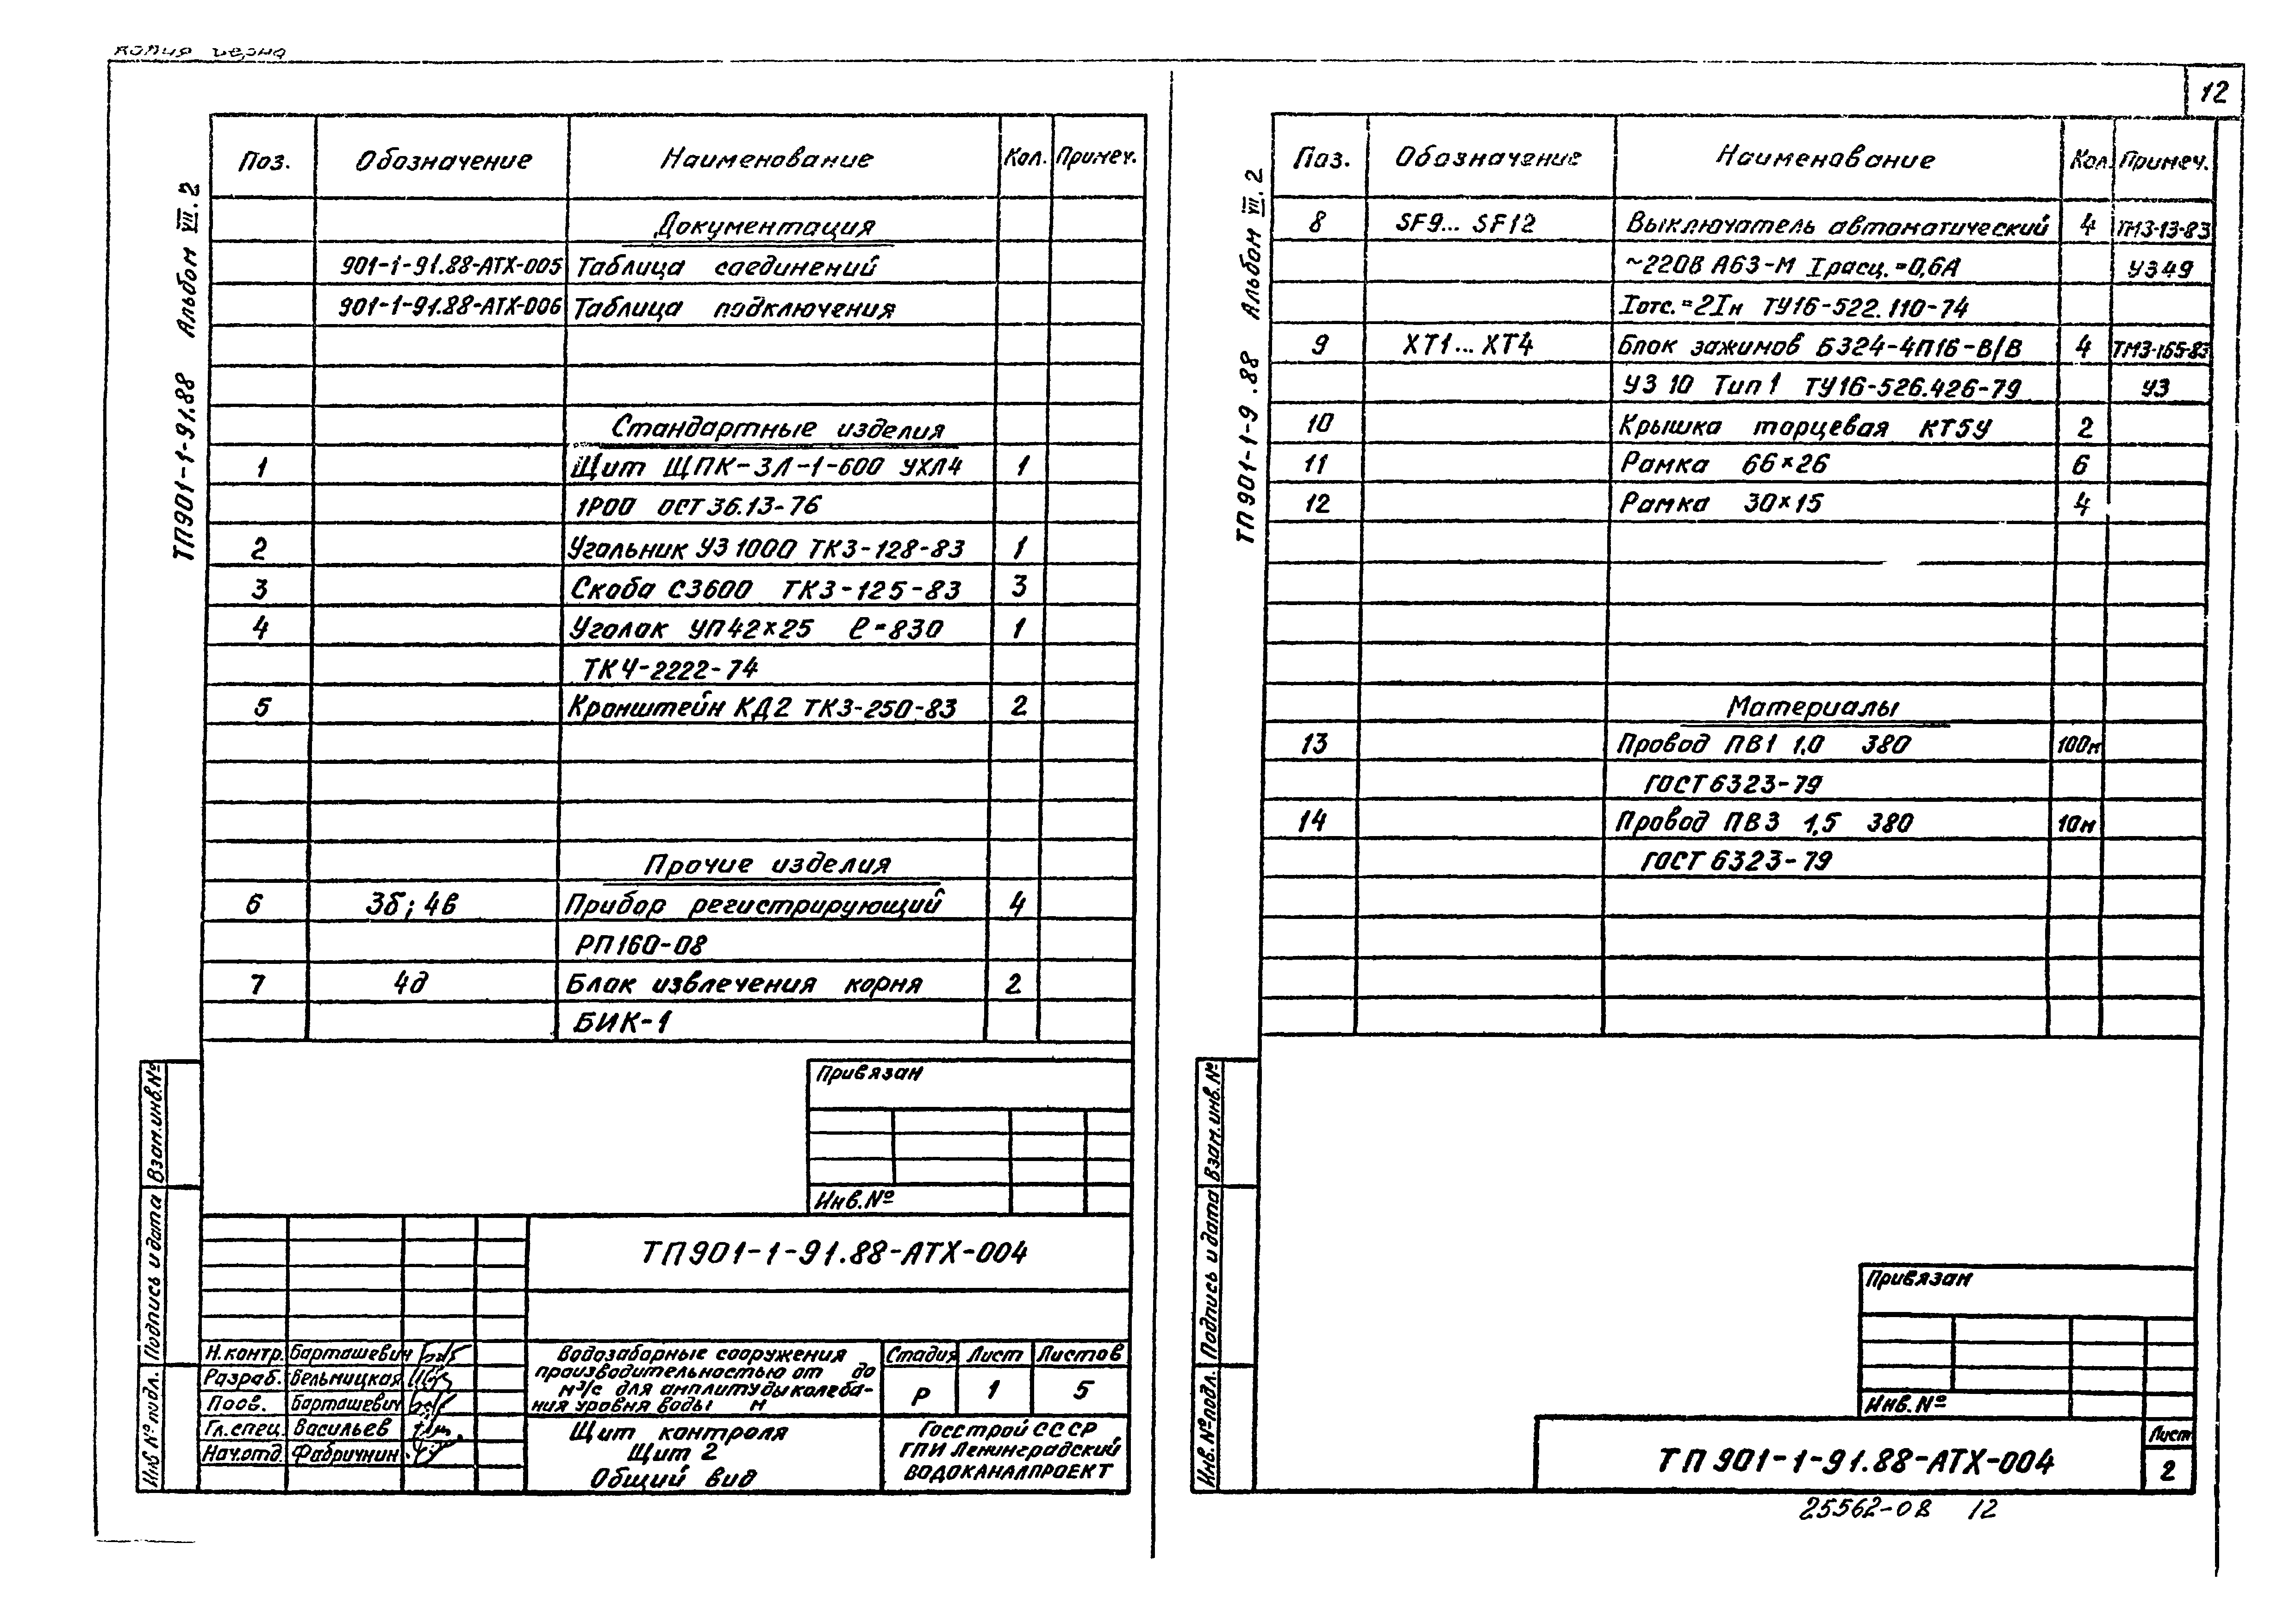 копия верна
12
ТП901-1-91.88 Альбом VII.2
Поз. Обозначение Наименование Кол. Примеч.
Документация
901-1-91.88-АТХ-005 Таблица соединений
901-1-91.88-АТХ-006 Таблица подключения
Стандартные изделия
1 Щит ЩПК-ЗЛ-1-600 УХЛ4 1
1Р00 ОСТ 36.13-76
2 Угольник УЗ 1000 ТКЗ-128-83 1
3 Скоба СЗ600 ТКЗ-125-83 3
4 Уголок УП42×25 ℓ=830 1
ТК4-2222-74
5 Кронштейн КД2 ТКЗ-250-83 2
Прочие изделия
6 3б; 4в Прибор регистрирующий 4
РП160-08
7 4д Блок извлечения корня 2
БИК-1
Привязан
Инв.№
Взам.инв.№
Подпись и дата
Инв № подл.
ТП901-1-91.88-АТХ-004
Н.контр. Барташевич
Разраб. Бельницкая
Пров. Барташевич
Гл.спец. Васильев
Нач.отд. Фабричнин
Водозаборные сооружения
производительностью от до
м³/с для амплитуды колеба-
ния уровня воды м
Стадия Лист Листов
Р 1 5
Щит контроля
Щит 2
Общий вид
Госстрой СССР
ГПИ Ленинградский
ВОДОКАНАЛПРОЕКТ
ТП901-1-9 .88 Альбом VII.2
Поз. Обозначение Наименование Кол. Примеч.
8 SF9... SF12 Выключатель автоматический 4 ТМЗ-13-83
~220В А63-М Iрасц.=0,6А У349
Iотс.=2Iн ТУ16-522.110-74
9 ХТ1... ХТ4 Блок зажимов БЗ24-4П16-В/В 4 ТМЗ-165-83
УЗ 10 Тип 1 ТУ16-526.426-79 У3
10 Крышка торцевая КТ5У 2
11 Рамка 66×26 6
12 Рамка 30×15 4
Материалы
13 Провод ПВ1 1,0 380 100м
ГОСТ 6323-79
14 Провод ПВ3 1,5 380 10м
ГОСТ 6323-79
Взам.инв.№
Подпись и дата
Инв.№ подл.
Привязан
Инв.№
ТП 901-1-91.88-АТХ-004
Лист
2
25562-08 12